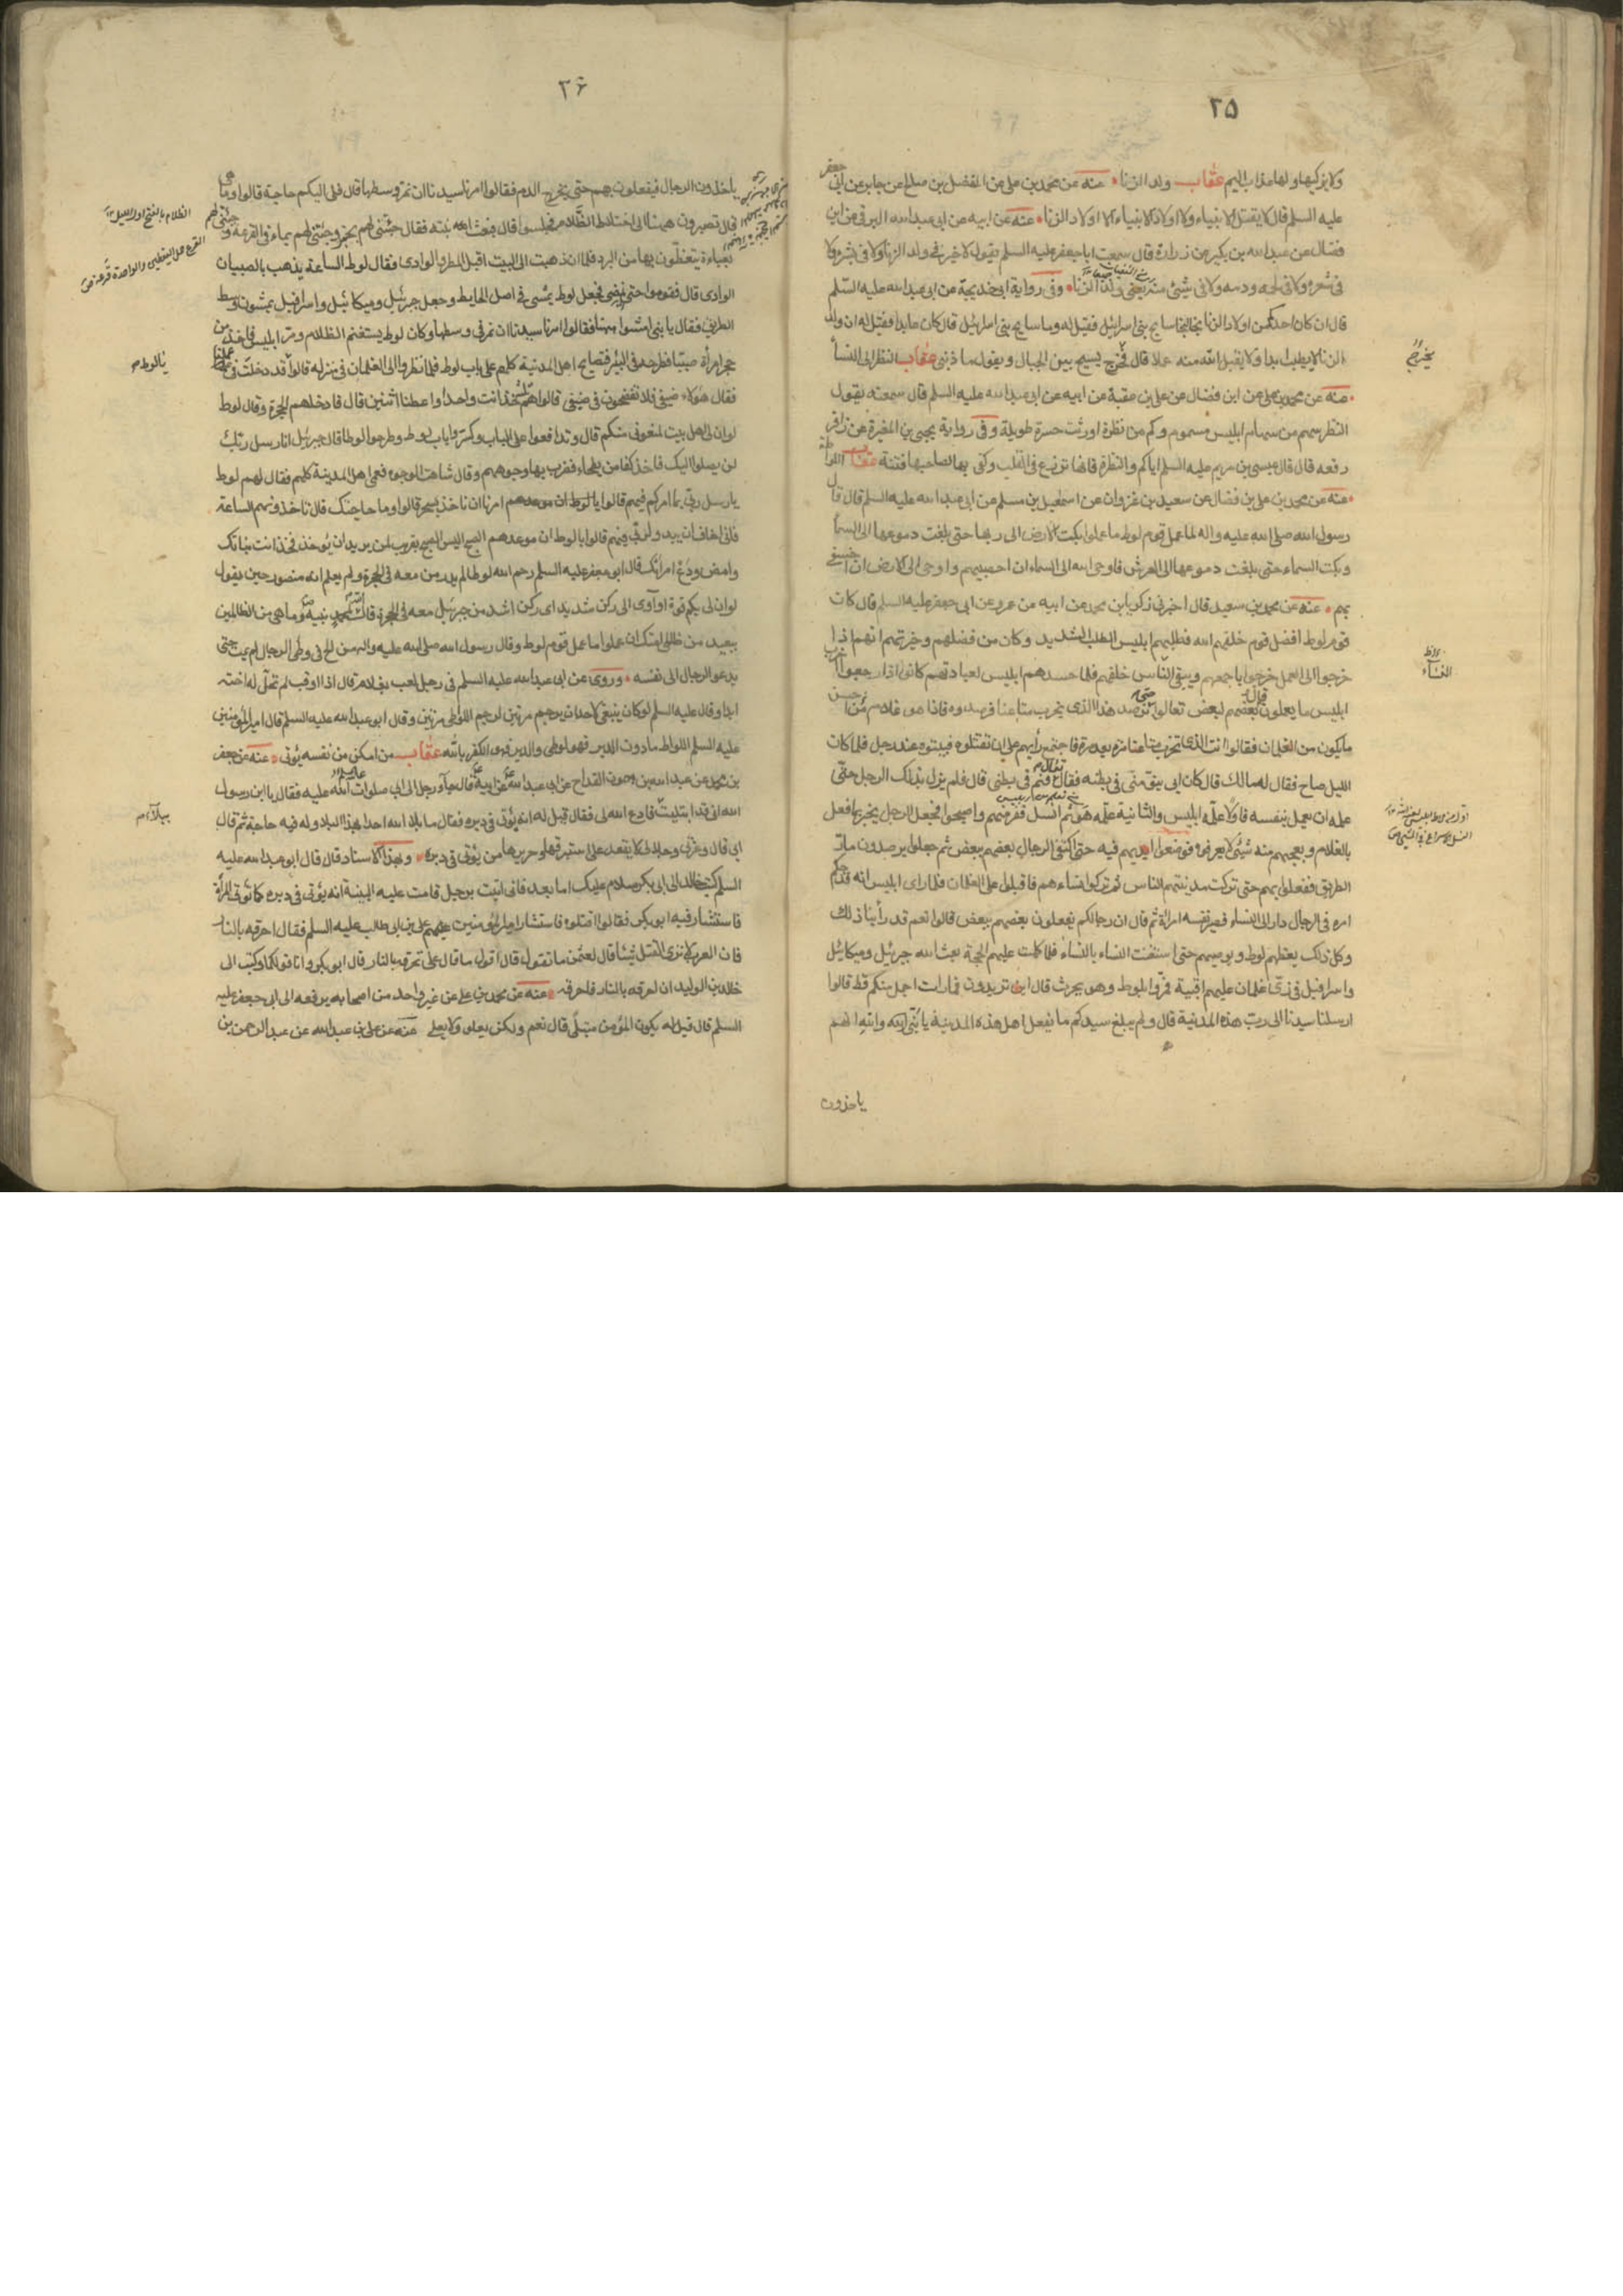 ٢٥
ولا يزكيها ولها عذاب اليم عقاب ولد الزنا عنه عن محمد بن علي عن المفضل بن صالح عن جابر عن ابي جعفر
عليه السلم قال لا يقتل الانبياء ولا اولاد الانبياء الا اولاد الزنا عنه عن ابيه عن ابي عبد الله البرقي عن ابن
فضال عن عبد الله بن بكير عن زرارة قال سمعت ابا جعفر عليه السلم يقول لا خير في ولد الزنا ولا في بشره ولا
في شعره ولا في لحمه ودمه ولا في شئ منه يعني ولد الزنا وفي رواية ابي خديجة عن ابي عبد الله عليه السلم
قال ان كان احد من اولاد الزنا نجا نجا سايح بني اسرائيل فقيل له وما سايح بني اسرائيل قال كان عابدا فقيل له ان ولد
الزنا لا يطيب ابدا ولا يقبل الله منه عملا قال فخرج يسيح بين الجبال ويقول ما ذنبي عقاب النظر الى النسأ
عنه عن محمد بن علي عن ابن فضال عن علي بن عقبة عن ابيه عن ابي عبد الله عليه السلم قال سمعته يقول
النظر سهم من سهام ابليس مسموم وكم من نظرة اورثت حسرة طويلة وفي رواية يحيى بن المغيرة عن زافر
رفعه قال قال عيسى بن مريم عليه السلم اياكم والنظرة فانها تزرع في القلب وكفى بها لصاحبها فتنة عقاب اللواطة
عنه عن محمد بن علي بن فضال عن سعيد بن غزوان عن اسمعيل بن مسلم عن ابي عبد الله عليه السلم قال قال
رسول الله صلى الله عليه واله لما عمل قوم لوط ما عملوا بكت الارض الى ربها حتى بلغت دموعها الى السمأ
وبكت السماء حتى بلغت دموعها الى العرش فاوحى الله الى السماء ان احصبيهم واوحى الى الارض ان اخسفي
بهم عنه عن محمد بن سعيد قال اخبرني زكريا بن محمد عن ابيه عن عمرو عن ابي جعفر عليه السلم قال كان
قوم لوط افضل قوم خلقهم الله فطلبهم ابليس الطلب الشديد وكان من فضلهم وخيرتهم انهم اذا
خرجوا الى العمل خرجوا باجمعهم ويبقى النأس خلفهم فلما حسدهم ابليس لعبادتهم كانوا اذا رجعوا خرب
ابليس ما يعملون قال بعضهم لبعض تعالوا حتى نرصد هذا الذي يخرب متاعنا فرصدوه فاذا هو غلام من احسن
ما يكون من الغلمان فقالوا انت الذي تخرب متاعنا مرة بعد مرة فاجتمع رأيهم على ان تقتلوه فبيتوه عند رجل فلما كان
الليل صاح فقال له مالك قال كان ابي ينومني في بطنه فقال تعال فنم في بطني قال فلم يزل بذلك الرجل حتى
علمه ان يعمل بنفسه فاولا علمه ابليس والثانية علمه هو ثم انسل ففر منهم واصبحوا فجعل الرجل يخبر بما فعل
بالغلام ويعجبهم منه شيئ لا يعرفوه فوضعوا ايديهم فيه حتى اكتفى الرجال بعضهم ببعض ثم جعلوا يرصدون مار
الطريق فيفعلون بهم حتى تركت مدينتهم الناس ثم تركوا نساءهم فاقبلوا على الغلمان فلما راى ابليس انه قد احكم
امره في الرجال دار الى النساء فصير نفسه امرأة ثم قال ان رجالكم يفعلون بعضهم ببعض قالوا نعم قد رأينا ذلك
وكل ذلك يعظهم لوط ويوصيهم حتى استغنت النساء بالنساء فلما كملت عليهم الحجة بعث الله جبرئيل وميكائيل
واسرافيل في زي غلمان عليهم اقبية فمروا بلوط وهو يحرث قال اين تريدون فما رايت اجمل منكم قط قالوا
ارسلنا سيدنا الى رب هذه المدينة قال ولم يبلغ سيدكم ما يفعل اهل هذه المدينة يا بني انه والله انهم
ياخذون
٣۶
ياخذون الرجال فيفعلون بهم حتى يخرج الدم فقالوا امرنا سيدنا ان نمر وسطها قال فلي اليكم حاجة قالوا وما هي
قال تصبرون ههنا الى اختلاط الظلام فجلسوا قال فبعث ابنته فقال جيئني لهم بخبز وجيئني لهم بماء في القرعة وجيئي لهم
بعباءة يتغطون بها من البرد فلما ان ذهبت الى البيت اقبل المطر والوادي فقال لوط الساعة يذهب بالصبيان
الوادي قال قوموا حتى نمضي فجعل لوط يمشي في اصل الحايط وجعل جبرئيل وميكائيل واسرافيل يمشون وسط
الطريق فقال يا بني امشوا ههنا فقالوا امرنا سيدنا ان نمر في وسطها وكان لوط يستغنم الظلام ومر ابليس فاخذ من
حجر امرأة صبيا فطرحه في البئر فتصايح اهل المدينة كلهم على باب لوط فلما نظروا الى الغلمان في منزله قالوا قد دخلت في عملنا
فقال هؤلاء ضيفي فلا تفضحون في ضيفي قالوا هم ثلثة خذ انت واحدا واعطنا اثنين قال فادخلهم الحجرة وقال لوط
لو ان لي اهل بيت لمنعوني منكم قال وتدافعوا على الباب وكسروا باب لوط وطرحوا لوطا قال جبرئيل انا رسل ربك
لن يصلوا اليك فاخذ كفا من بطحاء فضرب بها وجوههم وقال شاهت الوجوه فعمي اهل المدينة كلهم فقال لهم لوط
يا رسل ربي بما امركم فيهم قالوا امرنا ان ناخذهم بالسحر قالوا وما حاجتك قال تاخذوهم الساعة
فاني اخاف ان يبدو لربي فيهم قالوا يا لوط ان موعدهم الصبح اليس الصبح بقريب لمن يريد ان يؤخذ فخذ انت بناتك
وامض ودع امراتك قال ابو جعفر عليه السلم رحم الله لوطا لم يدر من معه في الحجرة ولم يعلم انه منصور حين يقول
لو ان لي بكم قوة او آوي الى ركن شديد اي ركن اشد من جبرئيل معه في الحجرة قال الله لمحمد نبيه وما هي من الظالمين
ببعيد من ظالمي امتك ان عملوا ما عمل قوم لوط وقال رسول الله صلى الله عليه واله من الح في وطي الرجال لم يمت حتى
يدعو الرجال الى نفسه وروى عن ابي عبد الله عليه السلم في رجل لعب بغلام قال اذا اوقب لم تحل له اخته
ابدا وقال عليه السلم لو كان ينبغي لاحد ان يرجم مرتين لرجم اللوطي مرتين وقال ابو عبد الله عليه السلم قال امير المؤمنين
عليه السلم اللواط ما دون الدبر فهو لوطي والدبر فهو الكفر بالله عقاب من امكن من نفسه يؤتى عنه عن جعفر
بن محمد عن عبد الله بن ميمون القداح عن ابي عبد الله عن ابيه قال جآء رجل الى ابي صلوات الله عليه فقال يا ابن رسول
الله اني قد ابتليت فادع الله لي فقال قيل له انه يؤتى في دبره فقال ما بلا الله احدا بهذا البلاء وله فيه حاجة ثم قال
ابي قال وعزتي وجلالي لا يقعد على استبرقها وحريرها من يؤتى في دبره وبهذا الاسناد قال قال ابو عبد الله عليه
السلم كتب خالد الى ابي بكر سلام عليك اما بعد فاني اتيت برجل قامت عليه البينة انه يؤتى في دبره كما تؤتى المرأة
فاستشار فيه ابو بكر فقالوا اقتلوه فاستشار امير المؤمنين علي بن ابي طالب عليه السلم فقال احرقه بالنار
فان العرب لا ترى القتل شيئا قال لعثمن ما تقول قال اقول ما قال علي تحرقه بالنار قال ابو بكر وانا قولكما وكتب الى
خالد بن الوليد ان احرقه بالنار فاحرقه عنه عن محمد بن علي عن غير واحد من اصحابه يرفعه الى ابي جعفر عليه
السلم قال قيل له يكون المؤمن مبتلى قال نعم ولكن يعلو ولا يعلى عنه عن علي بن عبد الله عن عبد الرحمن بن